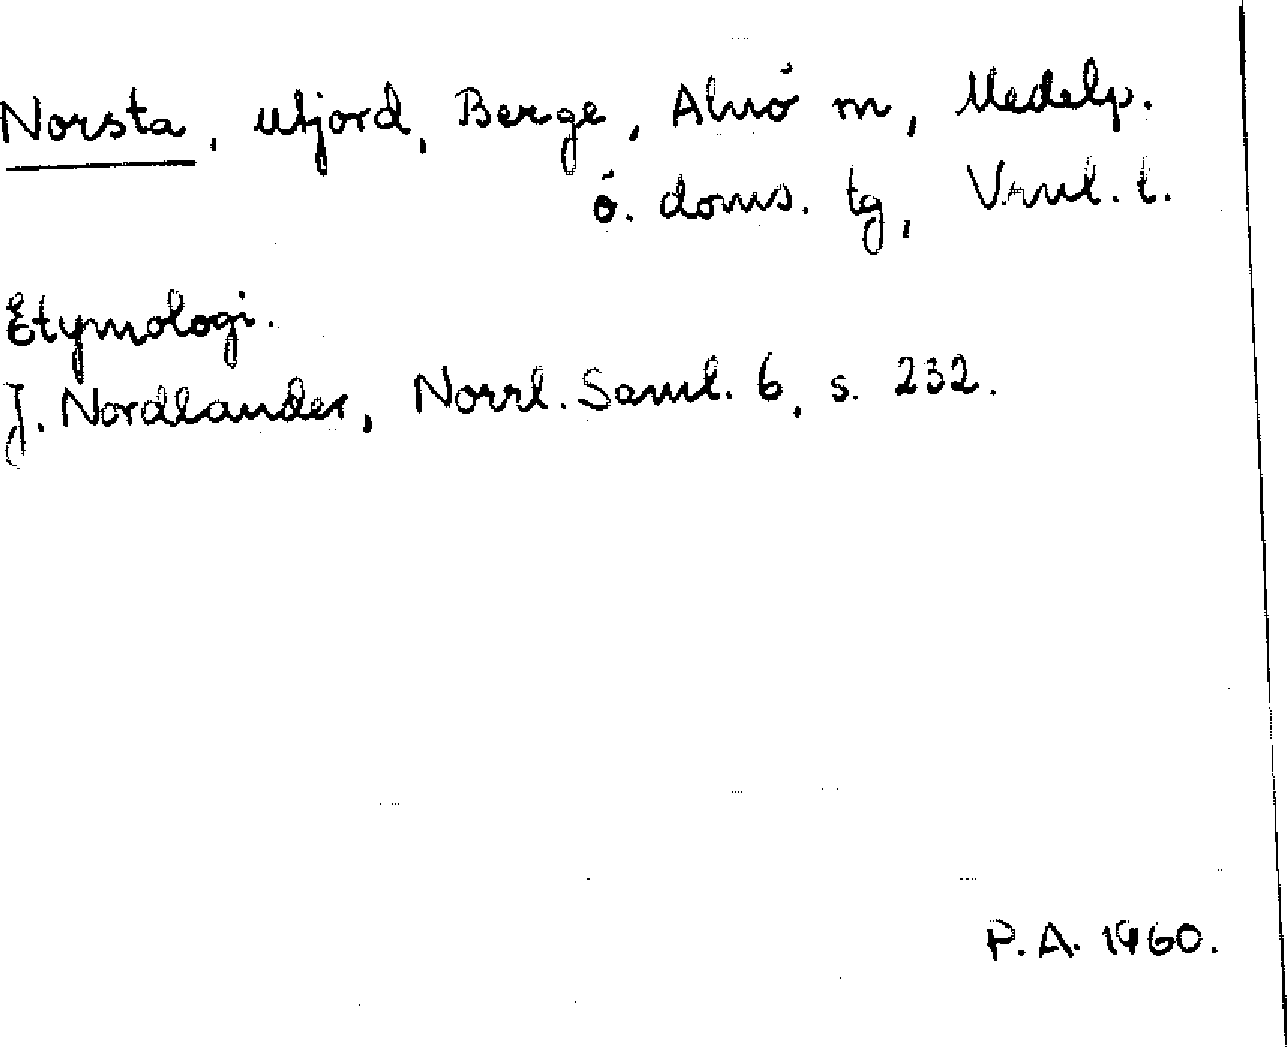 Norsta, utjord, Berge, Alnö sn, Medelp.
ö. doms. tg, Vrnl. l.
Etymologi.
J. Nordlander, Norrl. Saml. 6, s. 232.
P.A. 1960.